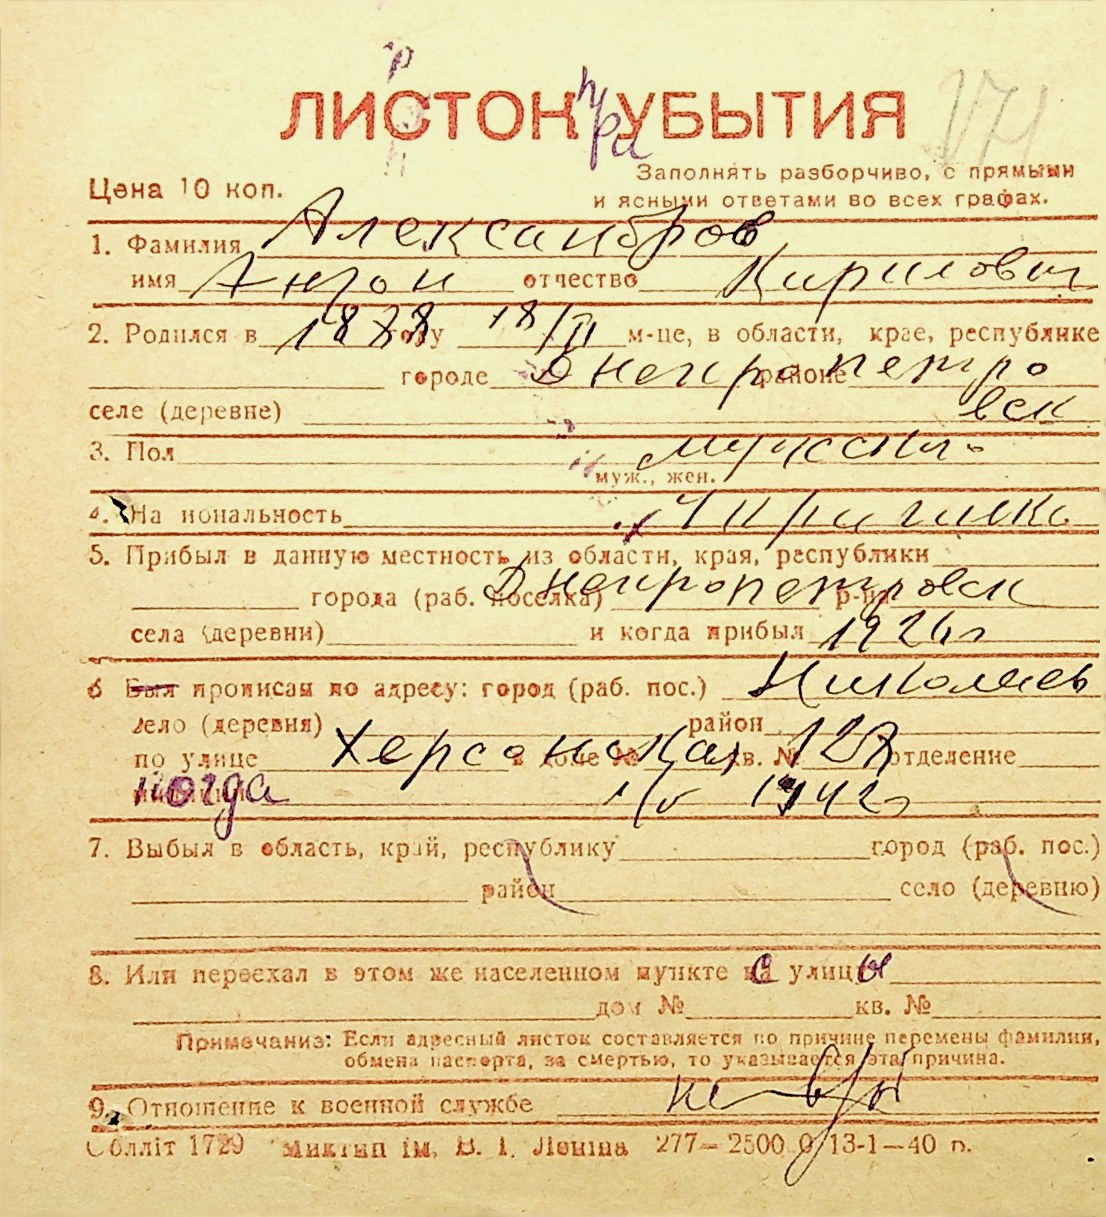 ЛИСТОК УБЫТИЯ
при
171
Цена 10 коп.
Заполнять разборчиво, с прямыми
и ясными ответами во всех графах.
1. Фамилия Александров
имя Антон отчество Кирилович
2. Родился в 1878 году 18/II м-це, в области, крае, республике
городе Днепропетро районе
селе (деревне) вск
3. Пол
муж., жен.
4. На иональность
5. Прибыл в данную местность из области, края, республики
города (раб. поселка) Днепропетровск р-на
села (деревни) и когда прибыл 1926 г
6 Был прописан по адресу: город (раб. пос.) Николаев
село (деревня) район
по улице Херсонская в доме № кв. № 127 отделение
милиции когда 1942 г
7. Выбыл в область, край, республику город (раб. пос.)
район село (деревню)
8. Или переехал в этом же населенном пункте с улицы
дом № кв. №
Примечание: Если адресный листок составляется по причине перемены фамилии,
обмена паспорта, за смертью, то указывается эта причина.
9. Отношение к военной службе не в/об
Облліт 1729 ім. В. І. Леніна 277—2500 13-1—40 р.